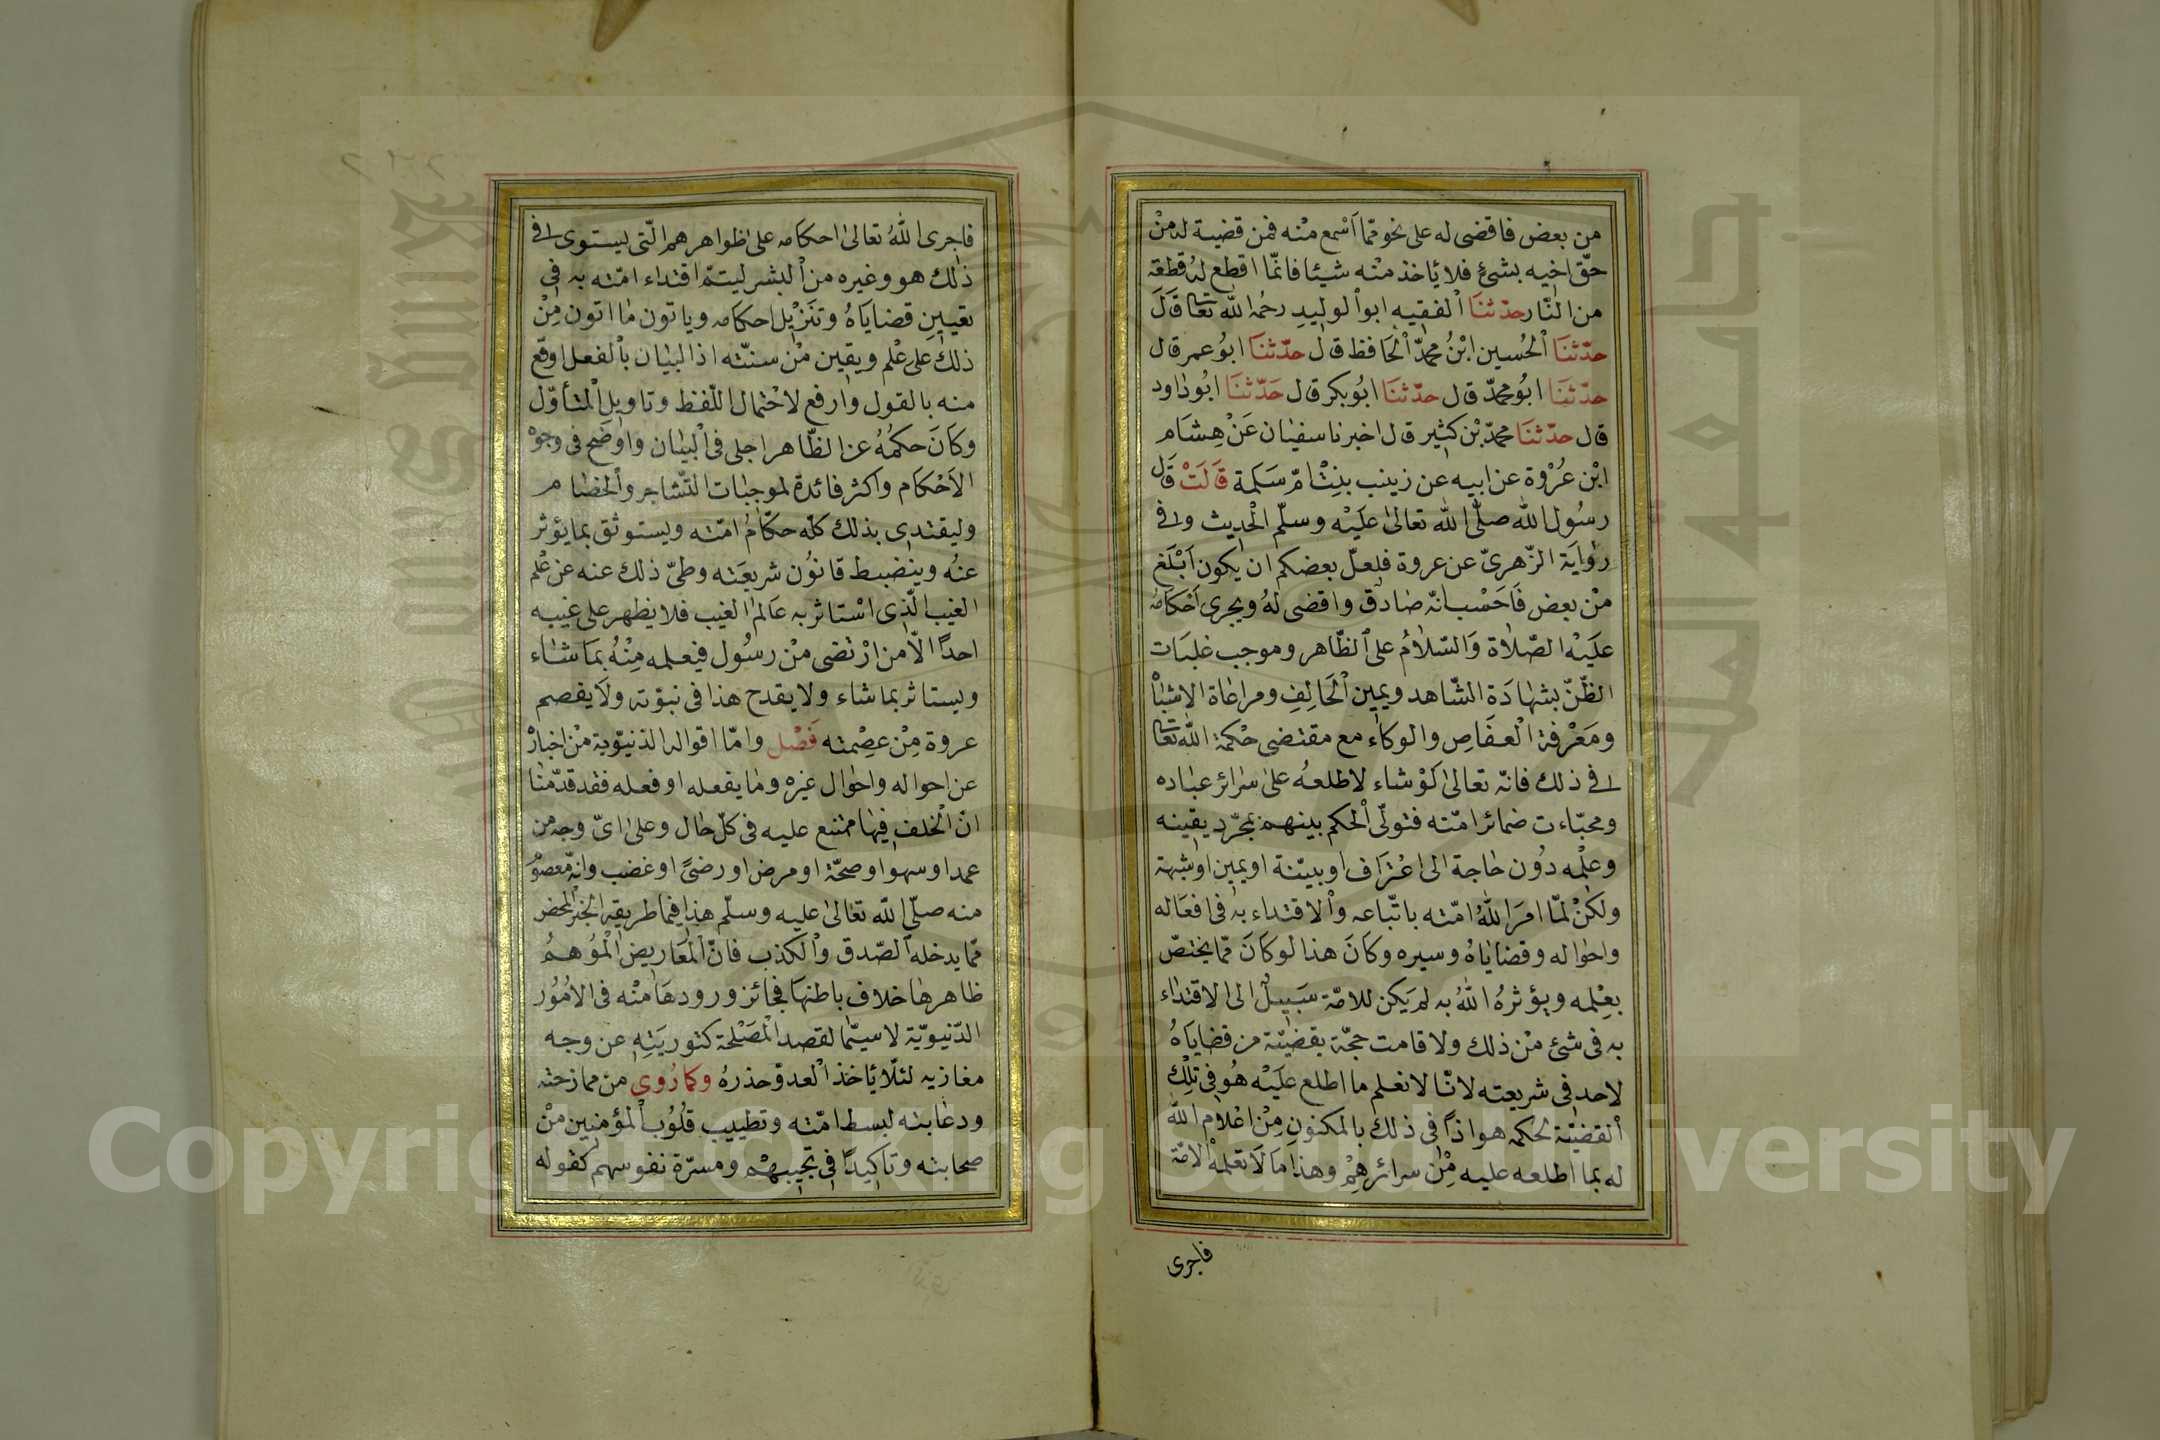 من بعض فاقضى له على نحو ممّا اَسْمع منْه فمن قضيت له منْ
حقّ اخيه بشئ فلا ئاخذ منْه شيئا فانّما اقطع لهُ قطعة
من النّار حدّثنَا الْفقيه ابوالْوليدِ رحمُه اللّٰه تعٰا قَالَ
حدّثنَا الْحُسين ابْنُ محمّد الْحافظ قال حدّثنَا ابُو عمر قال
حدّثنَا ابُو محمّد قال حدّثنَا ابُو بكر قال حَدّثنَا ابُو دٰاود
قال حدّثنَا محمّد بْن كثير قال اخبرنا سفيٰان عَنْ هِشَام
ابْن عُرْوة عن ابيه عن زينب بنِتْ امّ سَلمة قَالَتْ قَال
رسُول اللّٰه صلّى اللّٰه تعالىٰ عليَْه وسلّم الْحديث وفى
روٰاية الزّهرىّ عن عروة فلعلّ بعضكم ان يكون اَبْلَغ
منْ بعض فَاحَسْب انّه صٰادق واقضى لهُ ويجرى اَحْكامهُ
عليَْه الصّلاة وَالسّلامُ على الظّاهر وموجب غلبَات
الظّنّ بشهٰادَة الشّاهد ويمين الْحَالِفِ ومراعٰاة الاشبٰاْ
ومَعْرفة الْعفَاصِ والوكٰاء مع مقتضى حْكمة اللّٰه تعٰا
فى ذلك فانّه تعالىٰ لَوْ شاء لاطلعهُ علىٰ سرٰائر عبٰاده
ومخبّاٰت ضمائر امّته فتولّى الْحكم بينهم بمجّرد يقينه
وعلْمه دُون حٰاجة الى اعْترَاف او بيّنة او يمين او شبهة
ولكنْ لمّا امرَ اللّٰهُ امّته باتّباعه والْاقتداء به فى افعَاله
واحوٰاله وقضايٰاهُ وسيره وكَانَ هذا لو كَانَ ممّا يختصّ
بعِلمه ويؤثرهُ اللّٰهُ به لم يَكن للامّة سَبيلٌ الى الاقتدٰاء
به فى شئ منْ ذلك ولا قامت حجّة بقضيّة من قضايَاهُ
لاحد فى شريعته لانّا لا نعلم ما اطلع عليَْه هُو فى تلْك
الْقضيّة لحكمه هو اذًا فى ذلك بالمكنونِ مِنْ اعْلام اللّٰه
له بما اطلعه عليه مِنْ سرائرهِمْ وهذا مَا لَا تعْلمه الامّة
فاجرى
فاَجرى اللّٰهُ تعالىٰ احكامه على ظواهرهم الّتى يستوى فى
ذٰلك هو وغيره من الْبشر ليتمّ اقتداء امّته به فى
تعيين قضايَاهُ وتَنْزيْل احكامه وياتون مٰا اتون مِنْ
ذلك على عْلم ويقين منْ سنّته اذ البيٰان بالْفعل اوقع
منه بالقول وارفع لاحْتمال اللّفظ وتاويل الْمتأوّل
وكَانَ حكمُهُ عن الظّاهر اجلى فى الْبيٰان واوْضح فى وجوْه
الاَحْكام واكثر فائدة لموجبٰات التّشاجر والْخصٰام
وليقتدى بذلك كلّه حكّامُ امّته ويستوثق بما يؤثر
عنُه وينْضبط قانوُن شريعَته وطىّ ذلك عنه عن عْلم
الغيب الّذى اسْتاثر به عَالم الغيب فلا يظهر على غيبه
احداً الاّ من ارْتضى منْ رسُول فيعلمه مِنْهُ بمَا شٰاء
ويستاثر بما شاء ولا يقدح هذا فى نبوّته ولاَ يفصم
عروة مِنْ عِصْمته فَصْل وامّا اقواله الدّنيوّية منْ اخبارْ
عن احواله واحوٰال غيرْه ومٰا يفعله او فعله فقد قدّمنٰا
انّ الْخلف فيهٰا ممتنع عليه فى كلّ حٰال وعلىٰ اىّ وجه من
عمد او سهو او صحّة او مرض او رضىً او غضب وانّه معصوْ
منه صلّى اللّٰه تعٰالىٰ عليه وسلّم هذا فيما طريقه الخبرْ المحض
ممّا يدخله الْصّدق والْكذب فانّ الْمَعَاريض الْمُوهمُ
ظاهرهٰا خلاف باطنهَا فجائز ورودهَا منْه فى الاُمُوُر
الدّنيوّية لا سيّما لقصد الْمَصْلحة كتوريَتِه عن وجه
مغازيه لئلّا ئاخذ الْعدوّ حذرهُ وكما رُوى من ممازحته
ودعٰابته لبسط امّته وتطييب قُلُوُب الْمؤمنين منْ
صحابته وتاكيداً فى تحبيبهْم ومسرّة نفوسهم كقوله
Copyright © King Saud University